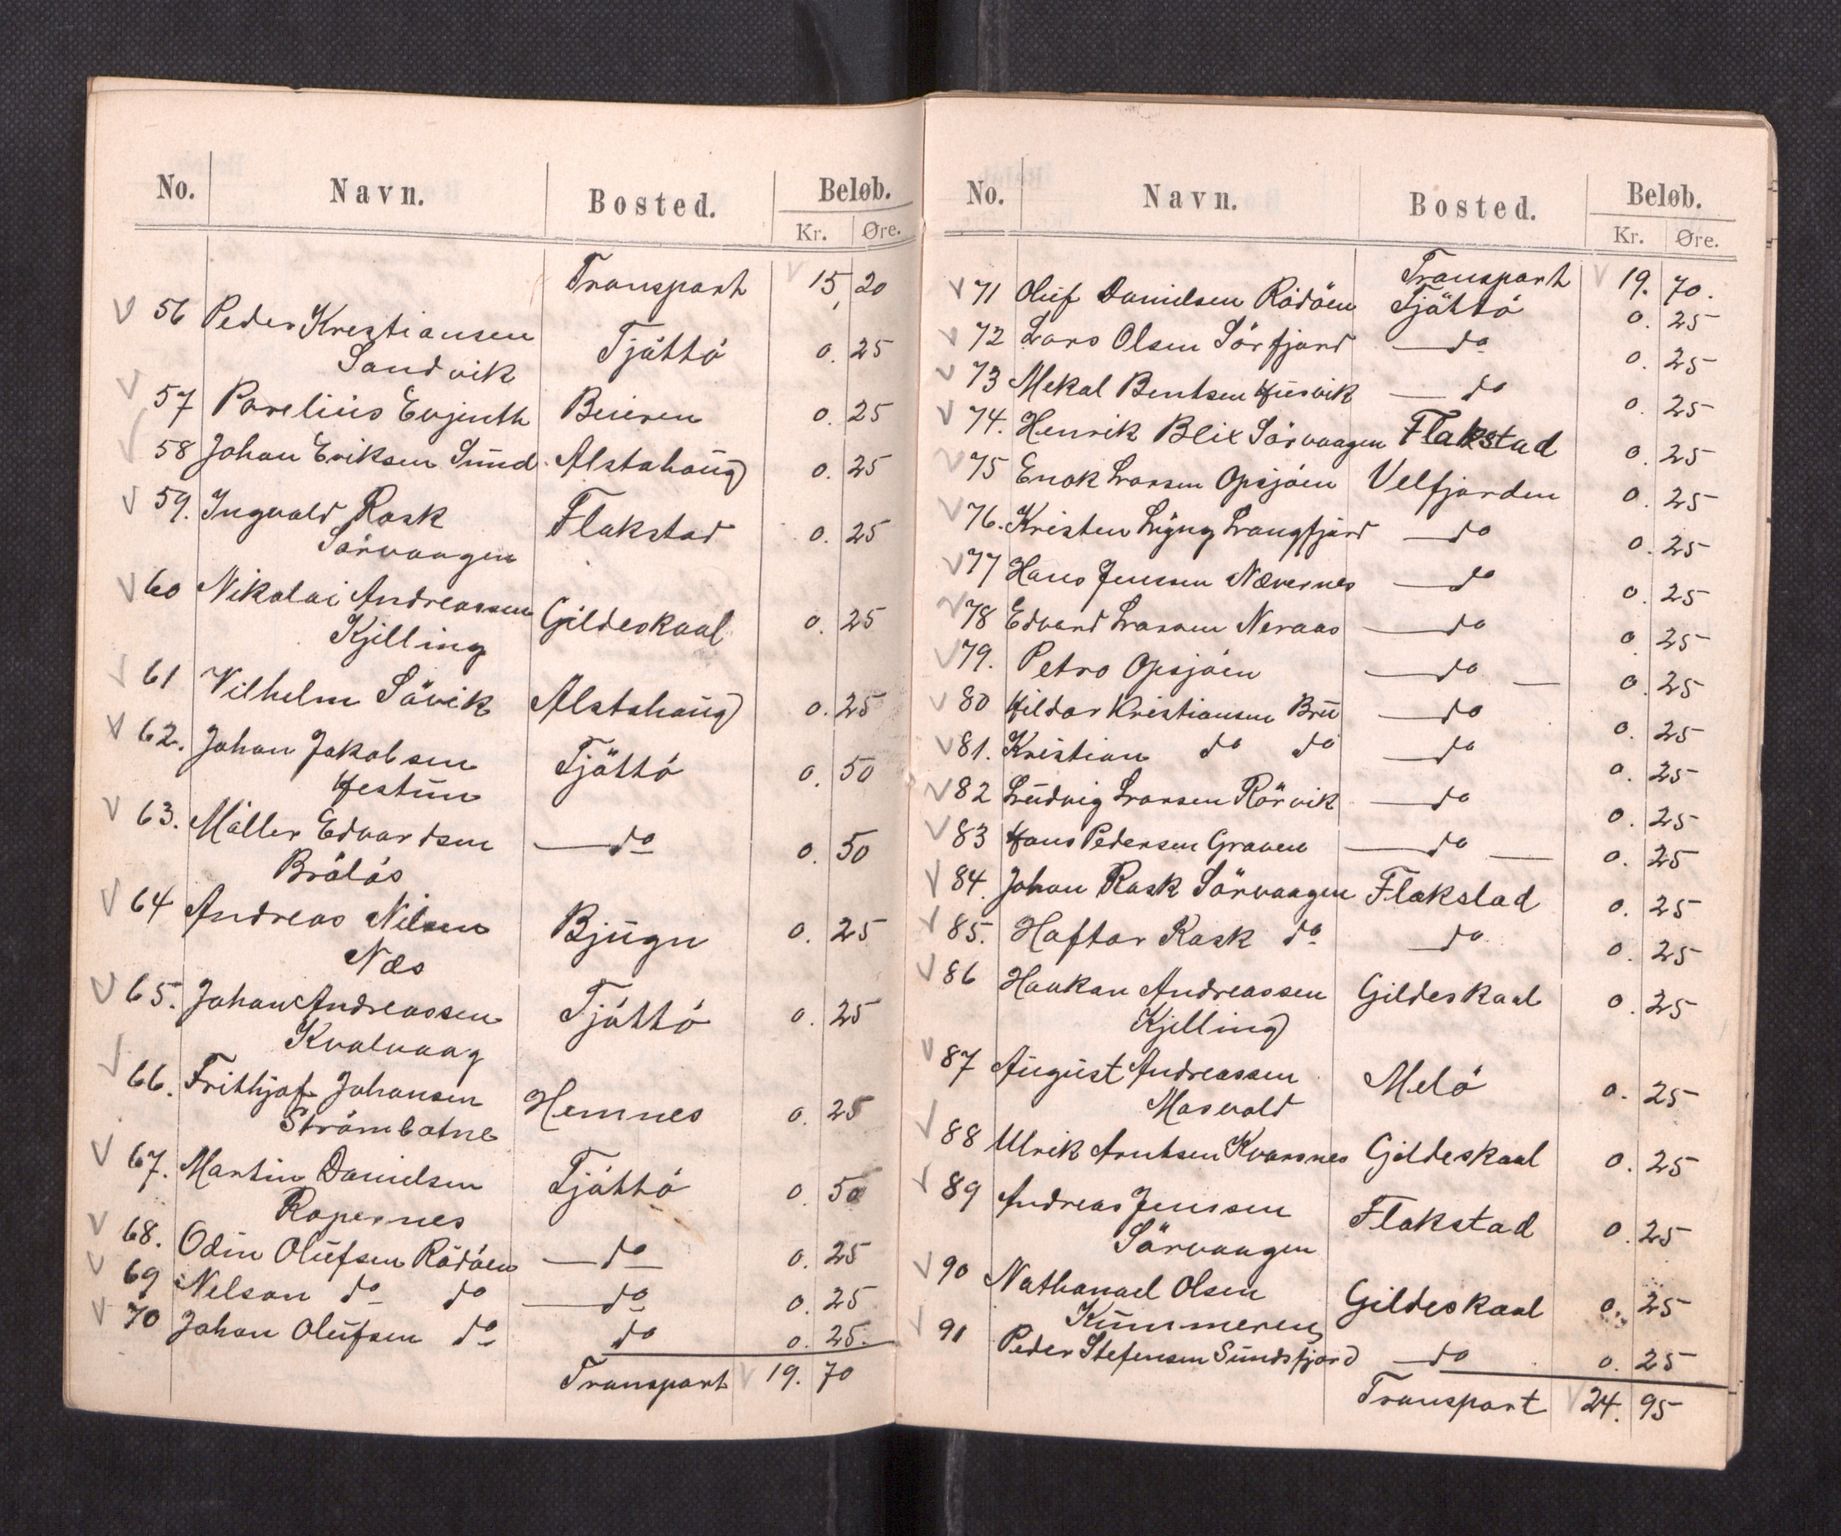 No. Navn. Bosted. Beløb.
Kr. Øre.
Transport 15, 20
56 Peder Krestiansen
Sandvik Tjøttö 0. 25
57 Parelius Evjenth Beieren 0. 25
58 Johan Eriksen Sund Alstahaug 0. 25
59. Ingvald Rask
Sörvaagen Flakstad 0. 25
60 Nikolai Andreassen
Kjelling Gildeskaal 0. 25
61 Vilhelm Sövik Alstahaug 0. 25
62. Johan Jakobsen
Hestun Tjöttö 0. 50
63. Möller Edvardsen
Brölös — do 0. 50
64 Andreas Nilsen
Næs Bjugn 0. 25
65. Johan Andreassen
Kvalvaag Tjöttö 0. 25
66. Frithjof Johansen
Strömbotne Hemnes 0. 25
67. Martin Danielsen
Ropernes Tjöttö 0. 50
68. Odin Olufsen Rödöen — do 0. 25
69 Nelson do do — do 0. 25
70 Johan Olufsen do do 0. 25.
Transport 19. 70
No. Navn. Bosted. Beløb.
Kr. Øre.
Transport 19. 70.
71 Oluf Danielsen Rödöen Tjöttö 0. 25
72 Lars Olsen Sörfjord — do 0. 25
73 Mekal Bentsen Husvik — do 0. 25
74. Henrik Blix Sörvaagen Flakstad 0. 25
75 Enok Larsen Opsjöen Velfjorden 0. 25
76. Kristen Lyng Langfjord — do 0. 25
77 Hans Jenssen Nævernes — do 0. 25
78 Edvard Larsen Neraas — do 0. 25
79. Petro Opsjöen — do — 0. 25
80 Hildor Kristiansen Bru — do 0. 25
81. Kristian do do — do 0. 25
82 Ludvig Larsen Rörvik — do 0. 25
83 Hans Pedersen Graven — do — 0. 25
84. Johan Rask Sörvaagen Flakstad 0. 25
85. Haftor Rask do do 0. 25
86 Haakon Andreassen
Kjelling Gildeskaal 0. 25
87 August Andreassen
Masvold Melö 0. 25
88 Ulrik Arntsen Kvarsnes Gildeskaal 0. 25
89 Andreas Jenssen
Sörvaagen Flakstad 0. 25
90 Nathanael Olsen
Kummeren Gildeskaal 0. 25
91 Peder Stefensen Sundsfjord — do 0. 25
Transport 24. 95